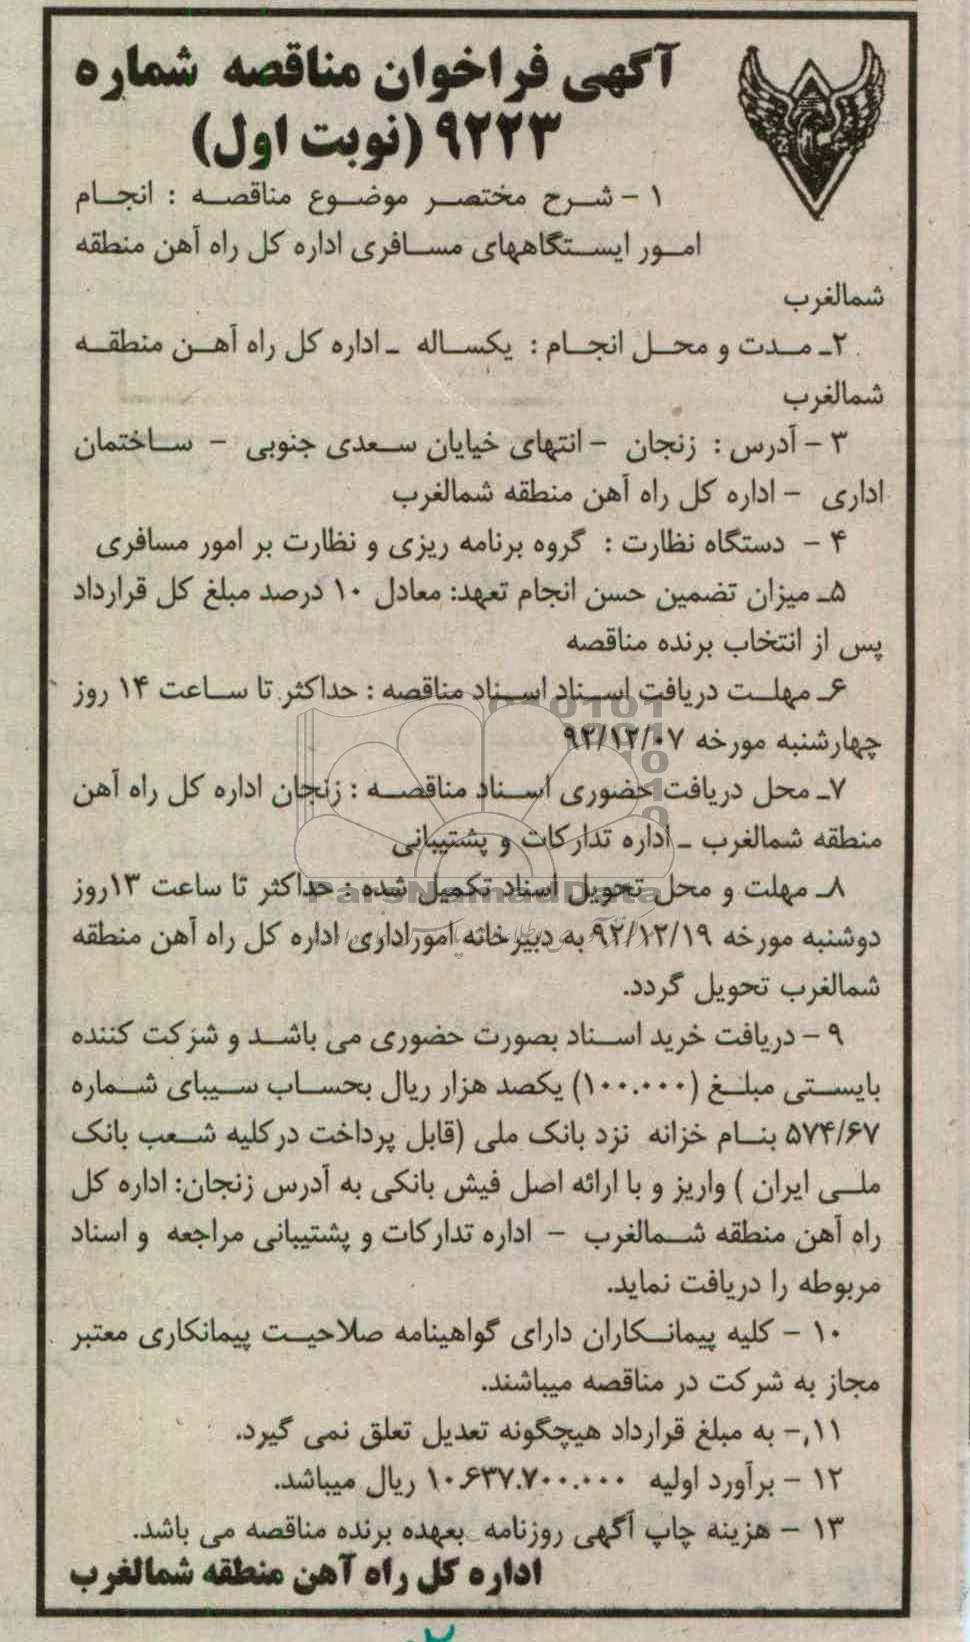 آگهی فراخوان مناقصه شماره
۹۲۲۳ (نوبت اول)
۱ - شرح مختصر موضوع مناقصه : انجام
امور ایستگاههای مسافری اداره کل راه آهن منطقه
شمالغرب
۲ـ مدت و محل انجام : یکساله ـ اداره کل راه آهن منطقه
شمالغرب
۳ - آدرس : زنجان - انتهای خیابان سعدی جنوبی - ساختمان
اداری - اداره کل راه آهن منطقه شمالغرب
۴ - دستگاه نظارت : گروه برنامه ریزی و نظارت بر امور مسافری
۵ـ میزان تضمین حسن انجام تعهد: معادل ۱۰ درصد مبلغ کل قرارداد
پس از انتخاب برنده مناقصه
۶ـ مهلت دریافت اسناد اسناد مناقصه : حداکثر تا ساعت ۱۴ روز
چهارشنبه مورخه ۹۲/۱۲/۰۷
۷ـ محل دریافت حضوری اسناد مناقصه : زنجان اداره کل راه آهن
منطقه شمالغرب ـ اداره تدارکات و پشتیبانی
۸ـ مهلت و محل تحویل اسناد تکمیل شده : حداکثر تا ساعت ۱۳روز
دوشنبه مورخه ۹۲/۱۲/۱۹ به دبیرخانه اموراداری اداره کل راه آهن منطقه
شمالغرب تحویل گردد.
۹ - دریافت خرید اسناد بصورت حضوری می باشد و شرکت کننده
بایستی مبلغ (۱۰۰.۰۰۰) یکصد هزار ریال بحساب سیبای شماره
۵۷۴/۶۷ بنام خزانه نزد بانک ملی (قابل پرداخت درکلیه شعب بانک
ملی ایران ) واریز و با ارائه اصل فیش بانکی به آدرس زنجان: اداره کل
راه آهن منطقه شمالغرب - اداره تدارکات و پشتیبانی مراجعه و اسناد
مربوطه را دریافت نماید.
۱۰ - کلیه پیمانکاران دارای گواهینامه صلاحیت پیمانکاری معتبر
مجاز به شرکت در مناقصه میباشند.
۱۱- به مبلغ قرارداد هیچگونه تعدیل تعلق نمی گیرد.
۱۲ - برآورد اولیه ۱۰.۶۳۷.۷۰۰.۰۰۰ ریال میباشد.
۱۳ - هزینه چاپ آگهی روزنامه بعهده برنده مناقصه می باشد.
اداره کل راه آهن منطقه شمالغرب
ParsNamadData